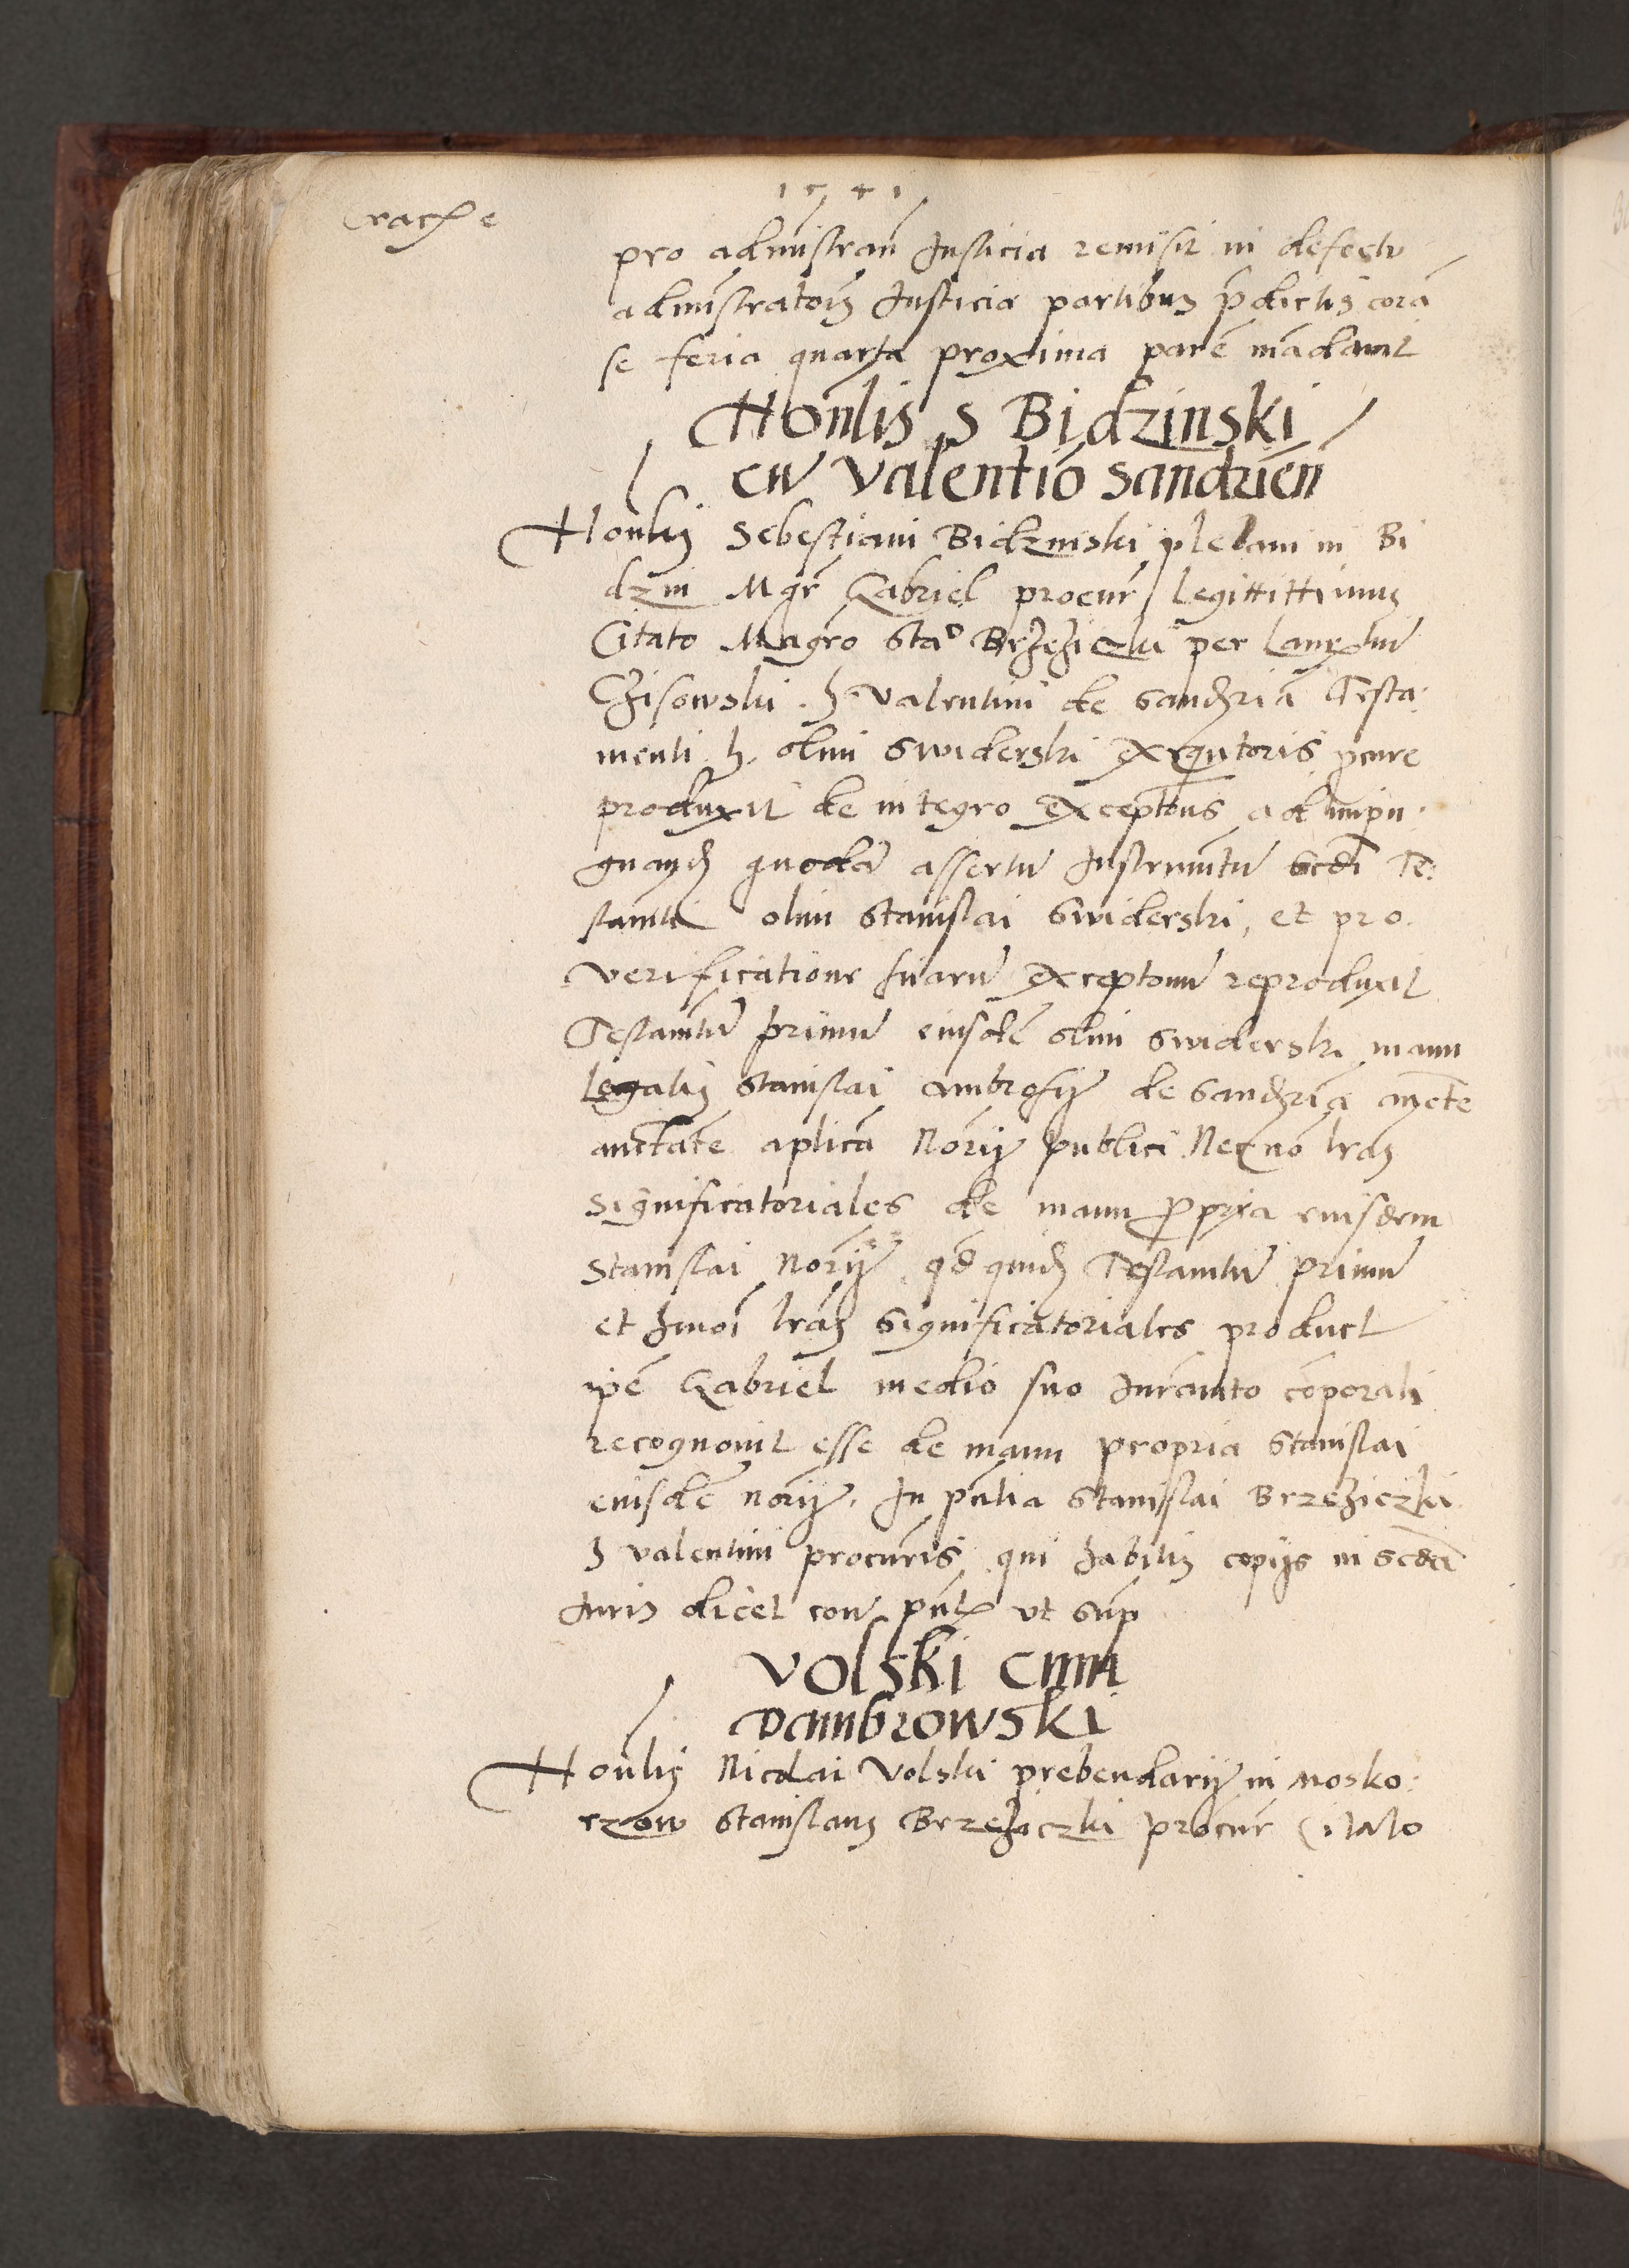 1541
Cracoe
pro admistran Justicia remisit in defectu
administratois Justicia partibus pdictis corā
se feria quarta proxima parē mādavit
Honlis S Bidzinski
cū Valentio Sandzien
Honlis Sebestiani Bidzinski plebani in Bi
dzin Mgr Gabriel procur legittittimus
Citato Magro Sta° Brzeziczki per
Czisowski h Valentini de Sandzia Testa
menti h olim Swiderski exequtoris pcure
produxit de integro exceptōns ad impu
gnand quodā assertū Instrumtū scdi Te
stamti olim Stanislai Swiderski, et pro
verificatione suarū exceptonū reproduxit
Testamtū primū eiusdē olim Swiderski manu
legalis Stanislai Ambrosij de Sandzia
auctate aplica Norij publici Necnō lras
significatoriales de manu ppria eiusdem
Stanislai Norij qd quid Testamtū primū
et hmoi lras significatoriales product
ipē Gabriel medio suo Juramto corporali
recognovit esse de manu propria Stanislai
eiusdē norij. In pntia Stanislai Brzeziczki
h Valentini procuris qui habitis copijs in scda
Juris dicet con pnt ut sup
Volski cum
Dambrowski
Honlis Nicolai Volski prebendarij in Mosko
rzow Stanislaus Brzeziczki procur Citato